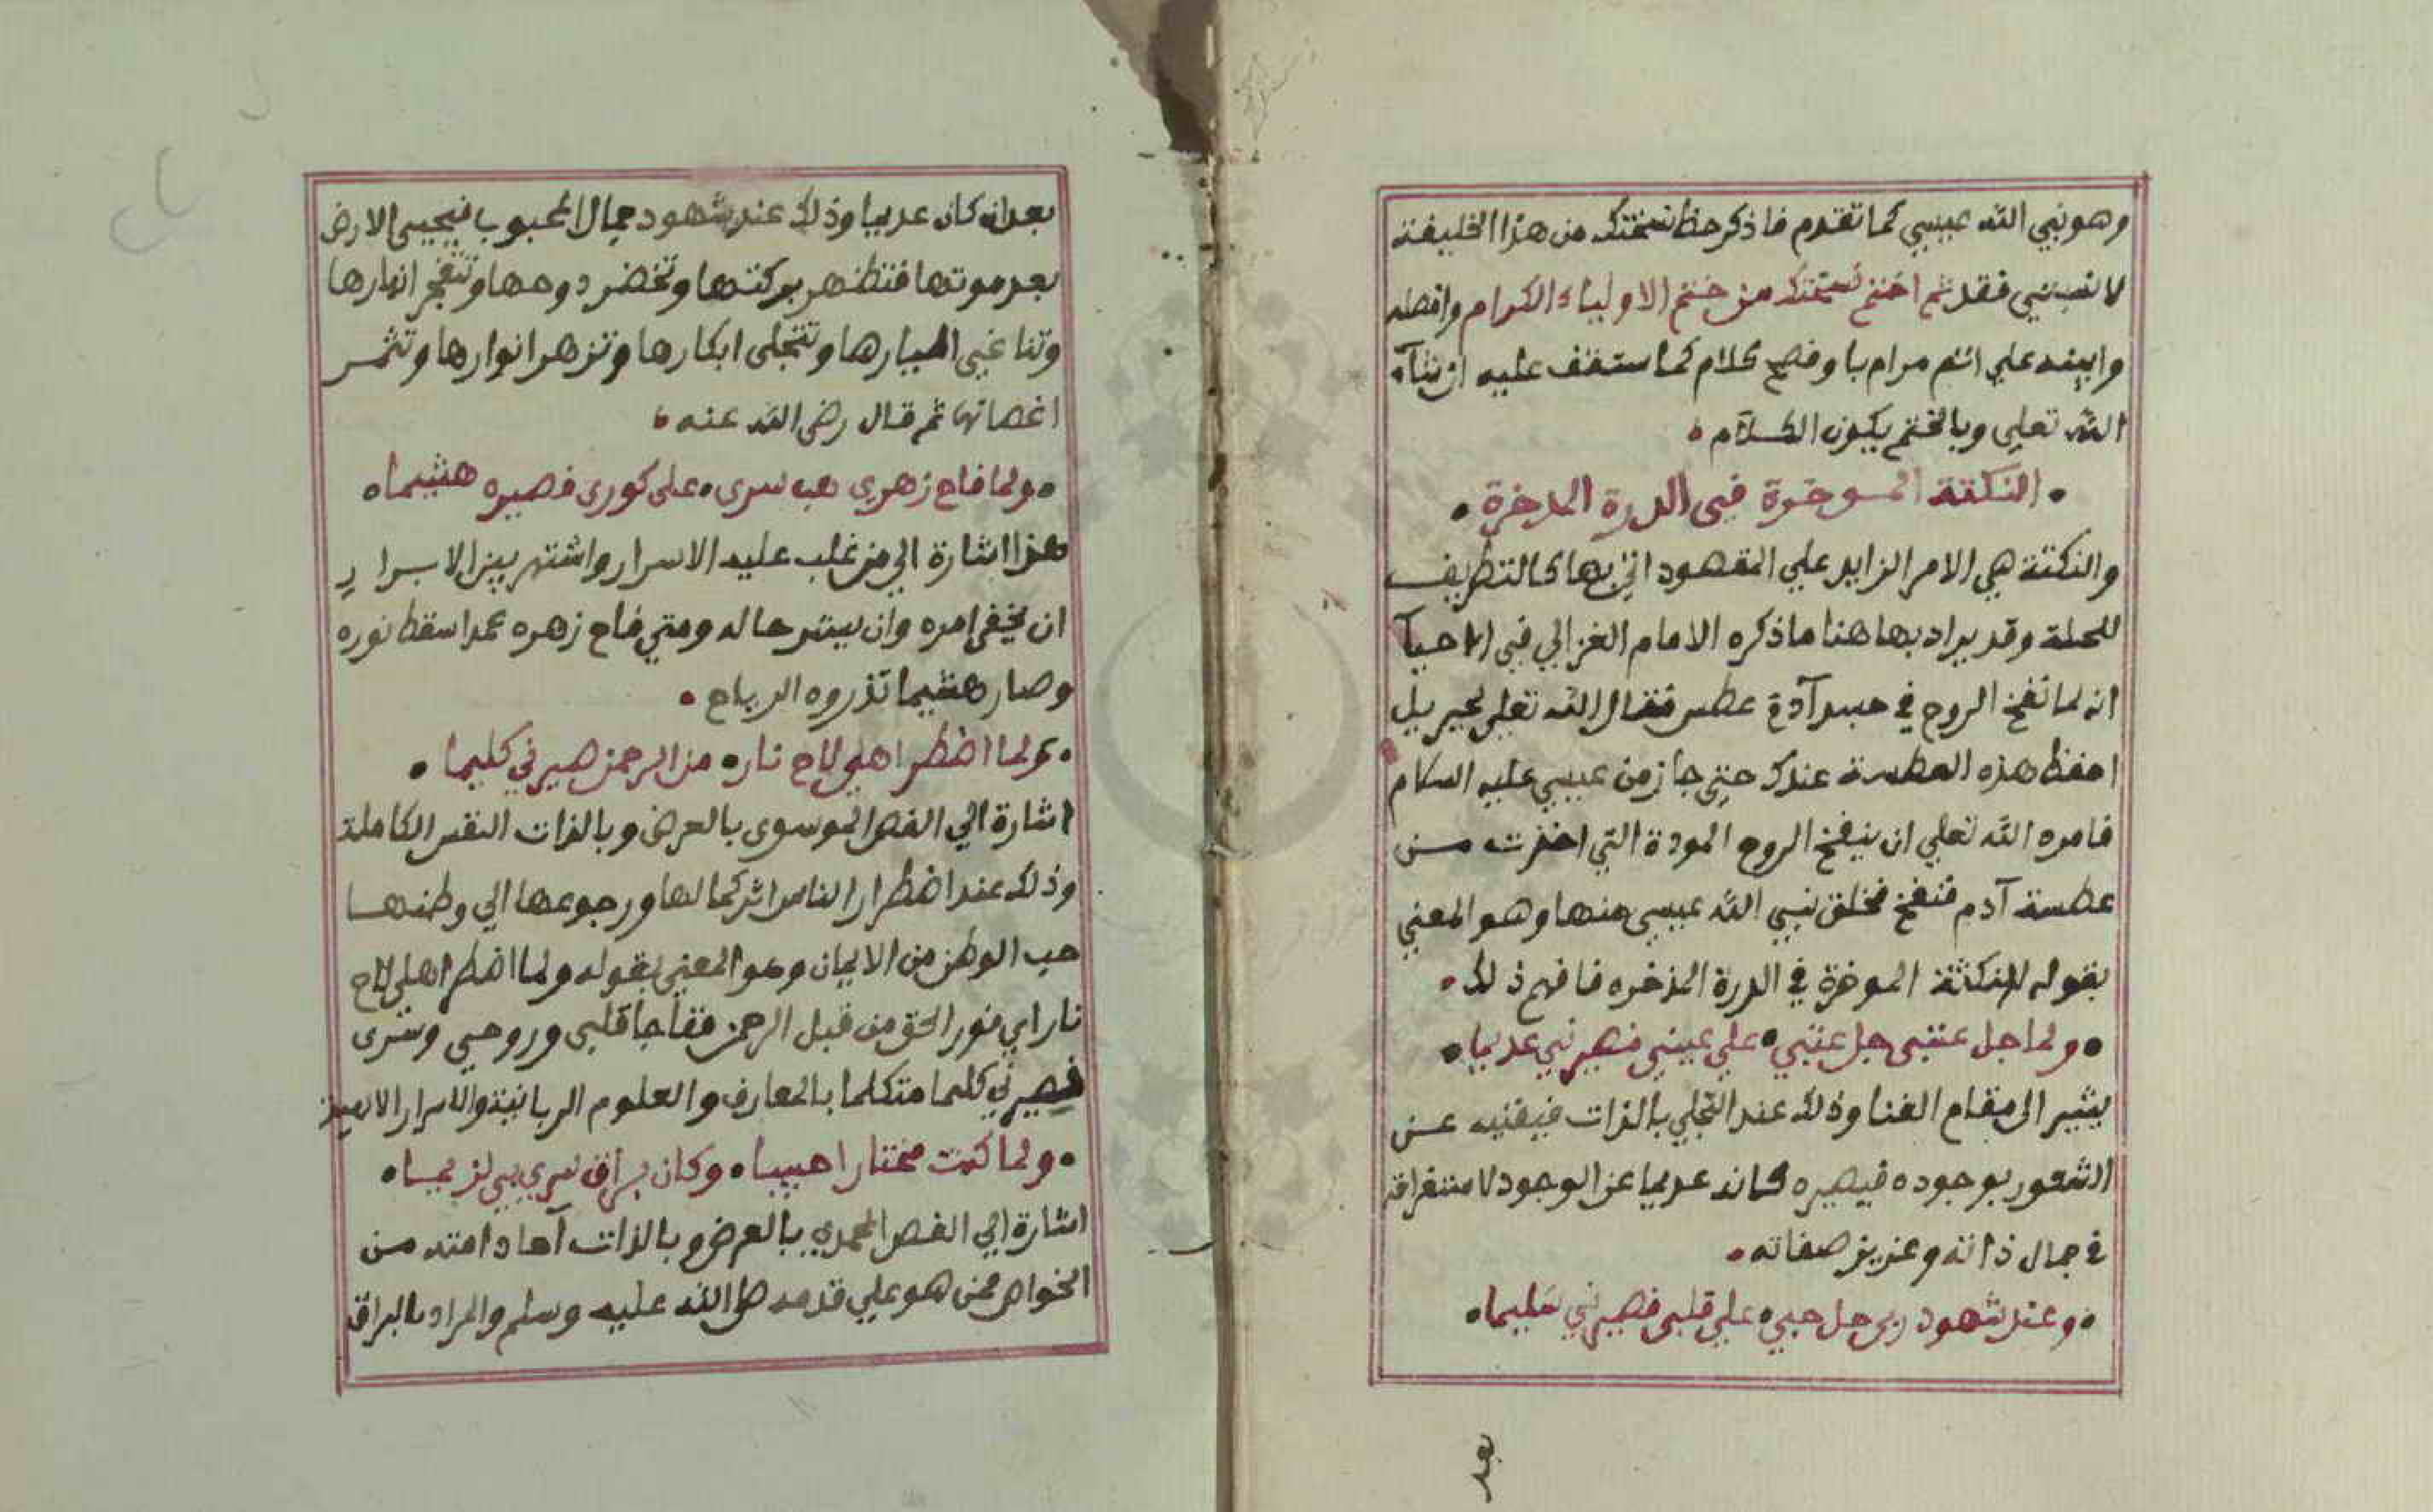 وهو نبي الله عيسي كما تقدم فاذكر حظ نسختك من هذا الخليفة
لانسبتي فقل ثم اختم نسختك من ختم الاولياء الكرام وافضله
وابينه علي اتم مرام باوضح كلام كما ستقف عليه ان شآء
الله تعلي وبالختم يكون الكلام
النكتة الموخرة في الدرة المدخرة
والنكتة هي الامر الزايد علي المقصود اتي بها كالتطريف
للحلة وقد يراد بها هنا ما ذكره الامام الغزالي في الاحيآ
انه لما نفخ الروح في جسد آدم عطس فقال الله تعلي لجبريل
احفظ هذه العطسة عندك حتي جا زمن عيسي عليه السلام
فامره الله تعلي ان ينفخ الروح المودة التي اخذت من
عطسة آدم فنفخ فخلق نبي الله عيسي منها وهو المعني
بقوله النكتة الموخرة في الدرة المذخره فافهم ذلك
ولما جل عتبي جل عتبي علي عيني فصيرني عديما
يشير الي مقام الفنا وذلك عند التجلي بالذات فيفنيه عن
الشعور بوجوده فيصيره كانه عديما عن الوجود لاستغراقه
في جمال ذاته وعزيز صفاته
وعند شهود ربي حل حبي علي قلبي فصيرني سليما
بعد
بعد انه كان عديما وذلك عند شهود جمال المحبوب فيحيى الارض
بعد موتها فتظهر بركتها وتخضر دوحها وتتفجر انهارها
وتناغي اطيارها وتتجلى ابكارها وتزهر انوارها وتثمر
اغصانها ثم قال رضى الله عنه
ولما فاح زهري هب سرى على نورى فصيره هشيما
هذا اشارة الي من غلب عليه الاسرار واشتهر بين الابرار
ان يخفى امره وان يستر حاله ومتي فاح زهره عمدا سقط نوره
وصار هشيما تذروه الرياح
ولما اضطر اهلي لاح نار من الرحمن صيرني كليما
اشارة الي الفص الموسوى بالعرض وبالذات النفس الكاملة
وذلك عند اضطرار الناس اثر كمالها ورجوعها الي وطنها
حب الوطن من الايمان وهو المعني بقوله ولما اضطر اهلي لاح
نار اي نور الحق من قبل الرحمن ففاجا قلبي وروحي وسرى
فصيرني كليما متكلما بالمعارف والعلوم الربانية والاسرار الالهية
ولما كنت مختارا حبيبا وكان براق سري بي لزيما
اشارة الي الفص المحمدي بالعرض وبالذات آحاد امته من
الخواص ممن هو علي قدمه صلى الله عليه وسلم والمراد بالبراق